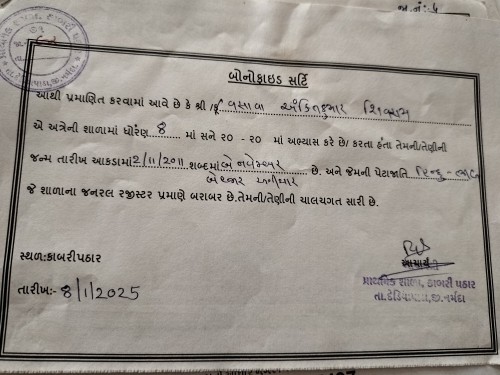 અ.નં:-૬
બોનોફાઇડ સર્ટિ
આથી પ્રમાણિત કરવામાં આવે છે કે શ્રી /કુ વસાવા અંકિતકુમાર શિવરામ
એ અત્રેની શાળામાં ધોરણ 8 માં સને ૨૦ - ૨૦ માં અભ્યાસ કરે છે/ કરતા હતા તેમની/તેણીની
જન્મ તારીખ આકડામાં 2/11/2011 શબ્દમાં બે નવેમ્બર
બે હજાર અગીયાર છે. અને જેમની પેટાજાતિ હિન્દુ -
જે શાળાના જનરલ રજીસ્ટર પ્રમાણે બરાબર છે.તેમની/તેણીની ચાલચગત સારી છે.
સ્થળ:કાબરીપઠાર
તારીખ:- 8/1/2025
આચાર્ય
પ્રાથમિક શાળા, કાબરી પઠાર
તા.દેડિયાપાડા,જી.નર્મદા